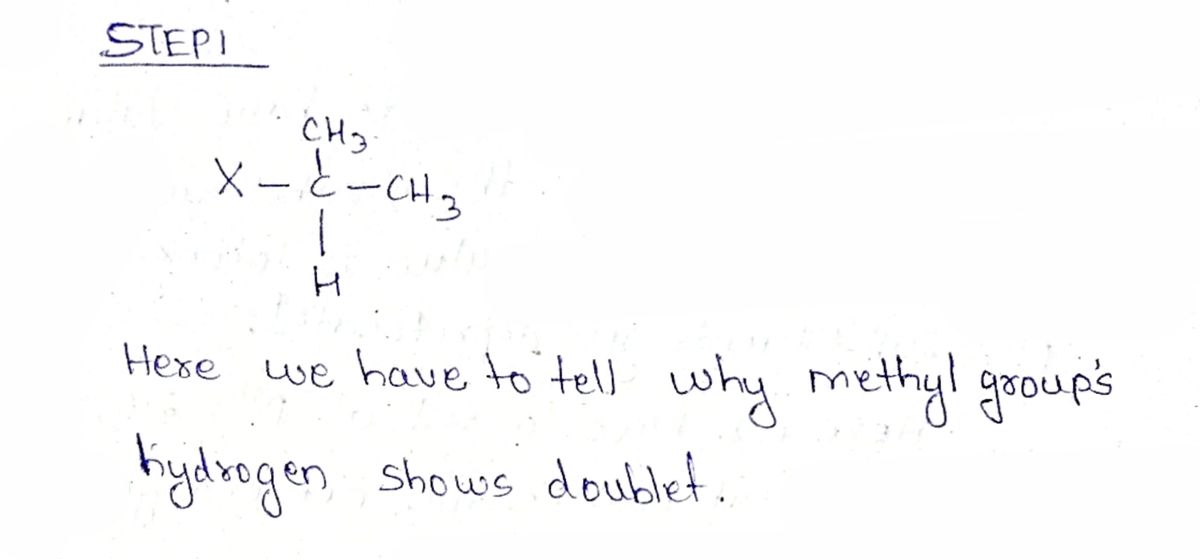 STEP1
CH3
X - C - CH3
|
H
Here we have to tell why methyl group's
hydrogen shows doublet.